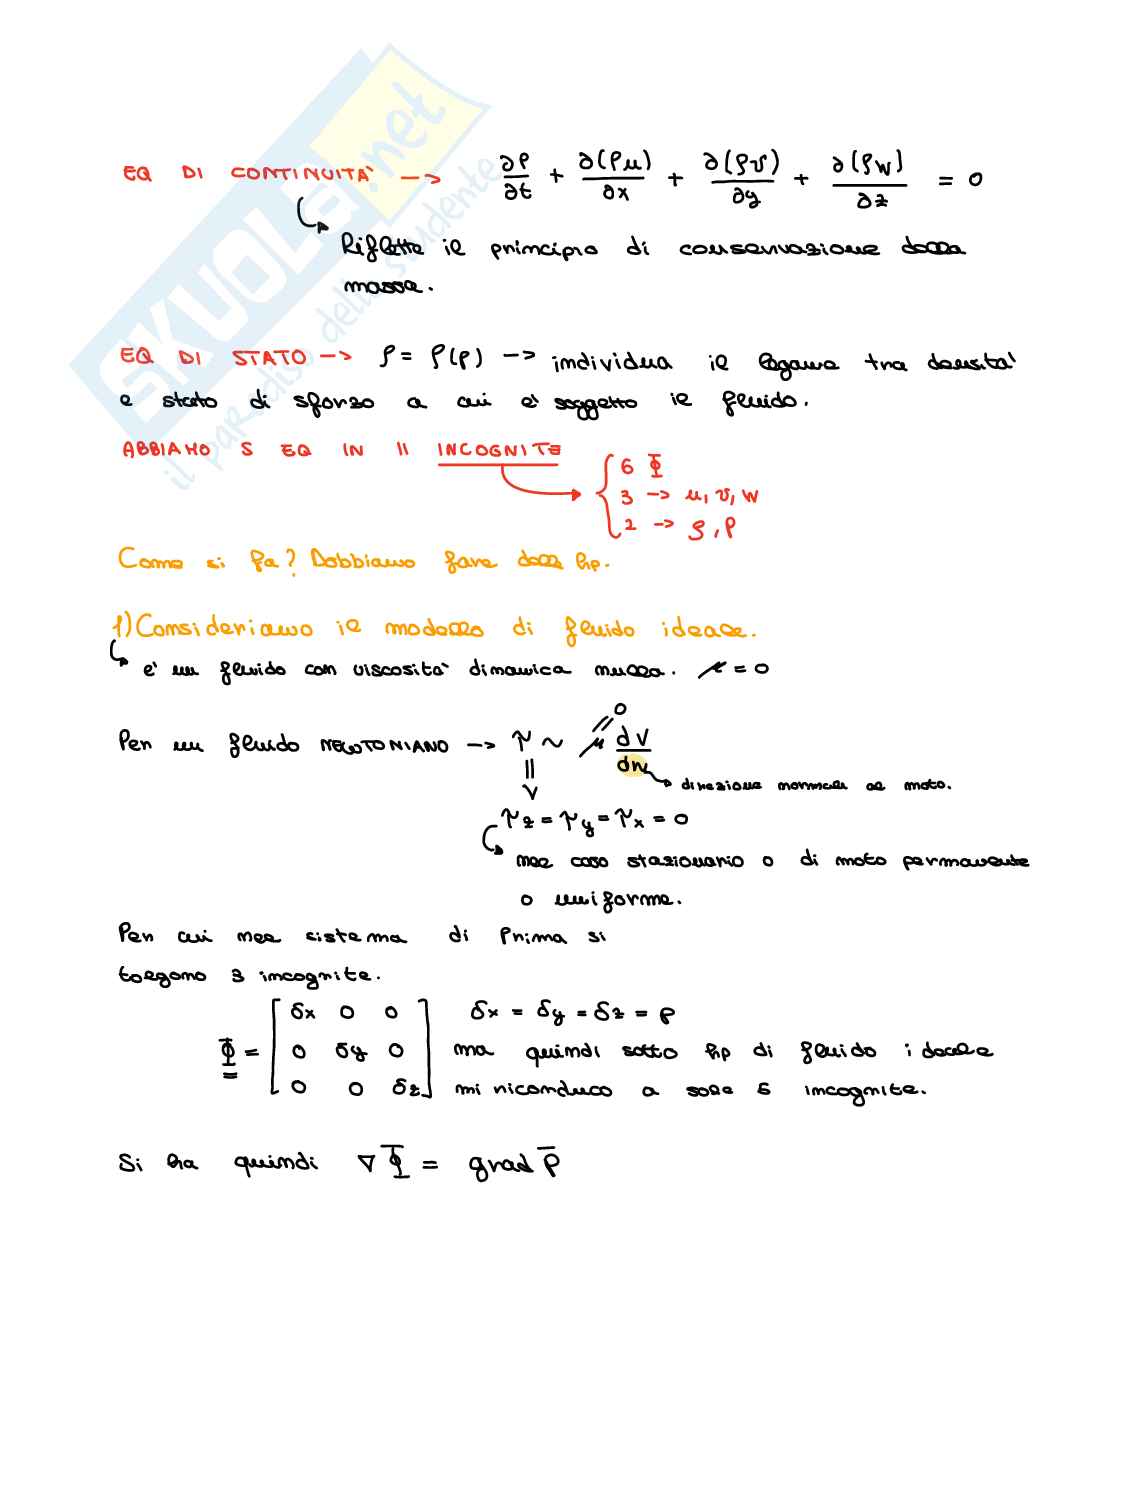 EQ DI CONTINUITA' —> ∂ρ/∂t + ∂(ρu)/∂x + ∂(ρv)/∂y + ∂(ρw)/∂z = 0
Riflette il principio di conservazione della
massa.
EQ DI STATO —> ρ = ρ(p) —> individua il legame tra densita'
e stato di sforzo a cui e' soggetto il fluido.
ABBIAMO 5 EQ IN 11 INCOGNITE
6 Φ
3 —> u, v, w
2 —> ρ, p
Come si fa? Dobbiamo fare delle hp.
1) Consideriamo il modello di fluido ideale.
e' un fluido con viscosita' dinamica nulla. μ = 0
Per un fluido NEWTONIANO —> τ ~ μ dV/dn
0
direzione normale al moto.
τz = τy = τx = 0
nel caso stazionario o di moto permanente
o uniforme.
Per cui nel sistema di prima si
tolgono 3 incognite.
Φ = [ δx 0 0 δx = δy = δz = p
0 δy 0 ma quindi sotto hp di fluido ideale
0 0 δz ] mi riconduco a sole 6 incognite.
Si ha quindi ∇Φ = grad p̄
SKUOLA.net
il paradiso dello studente